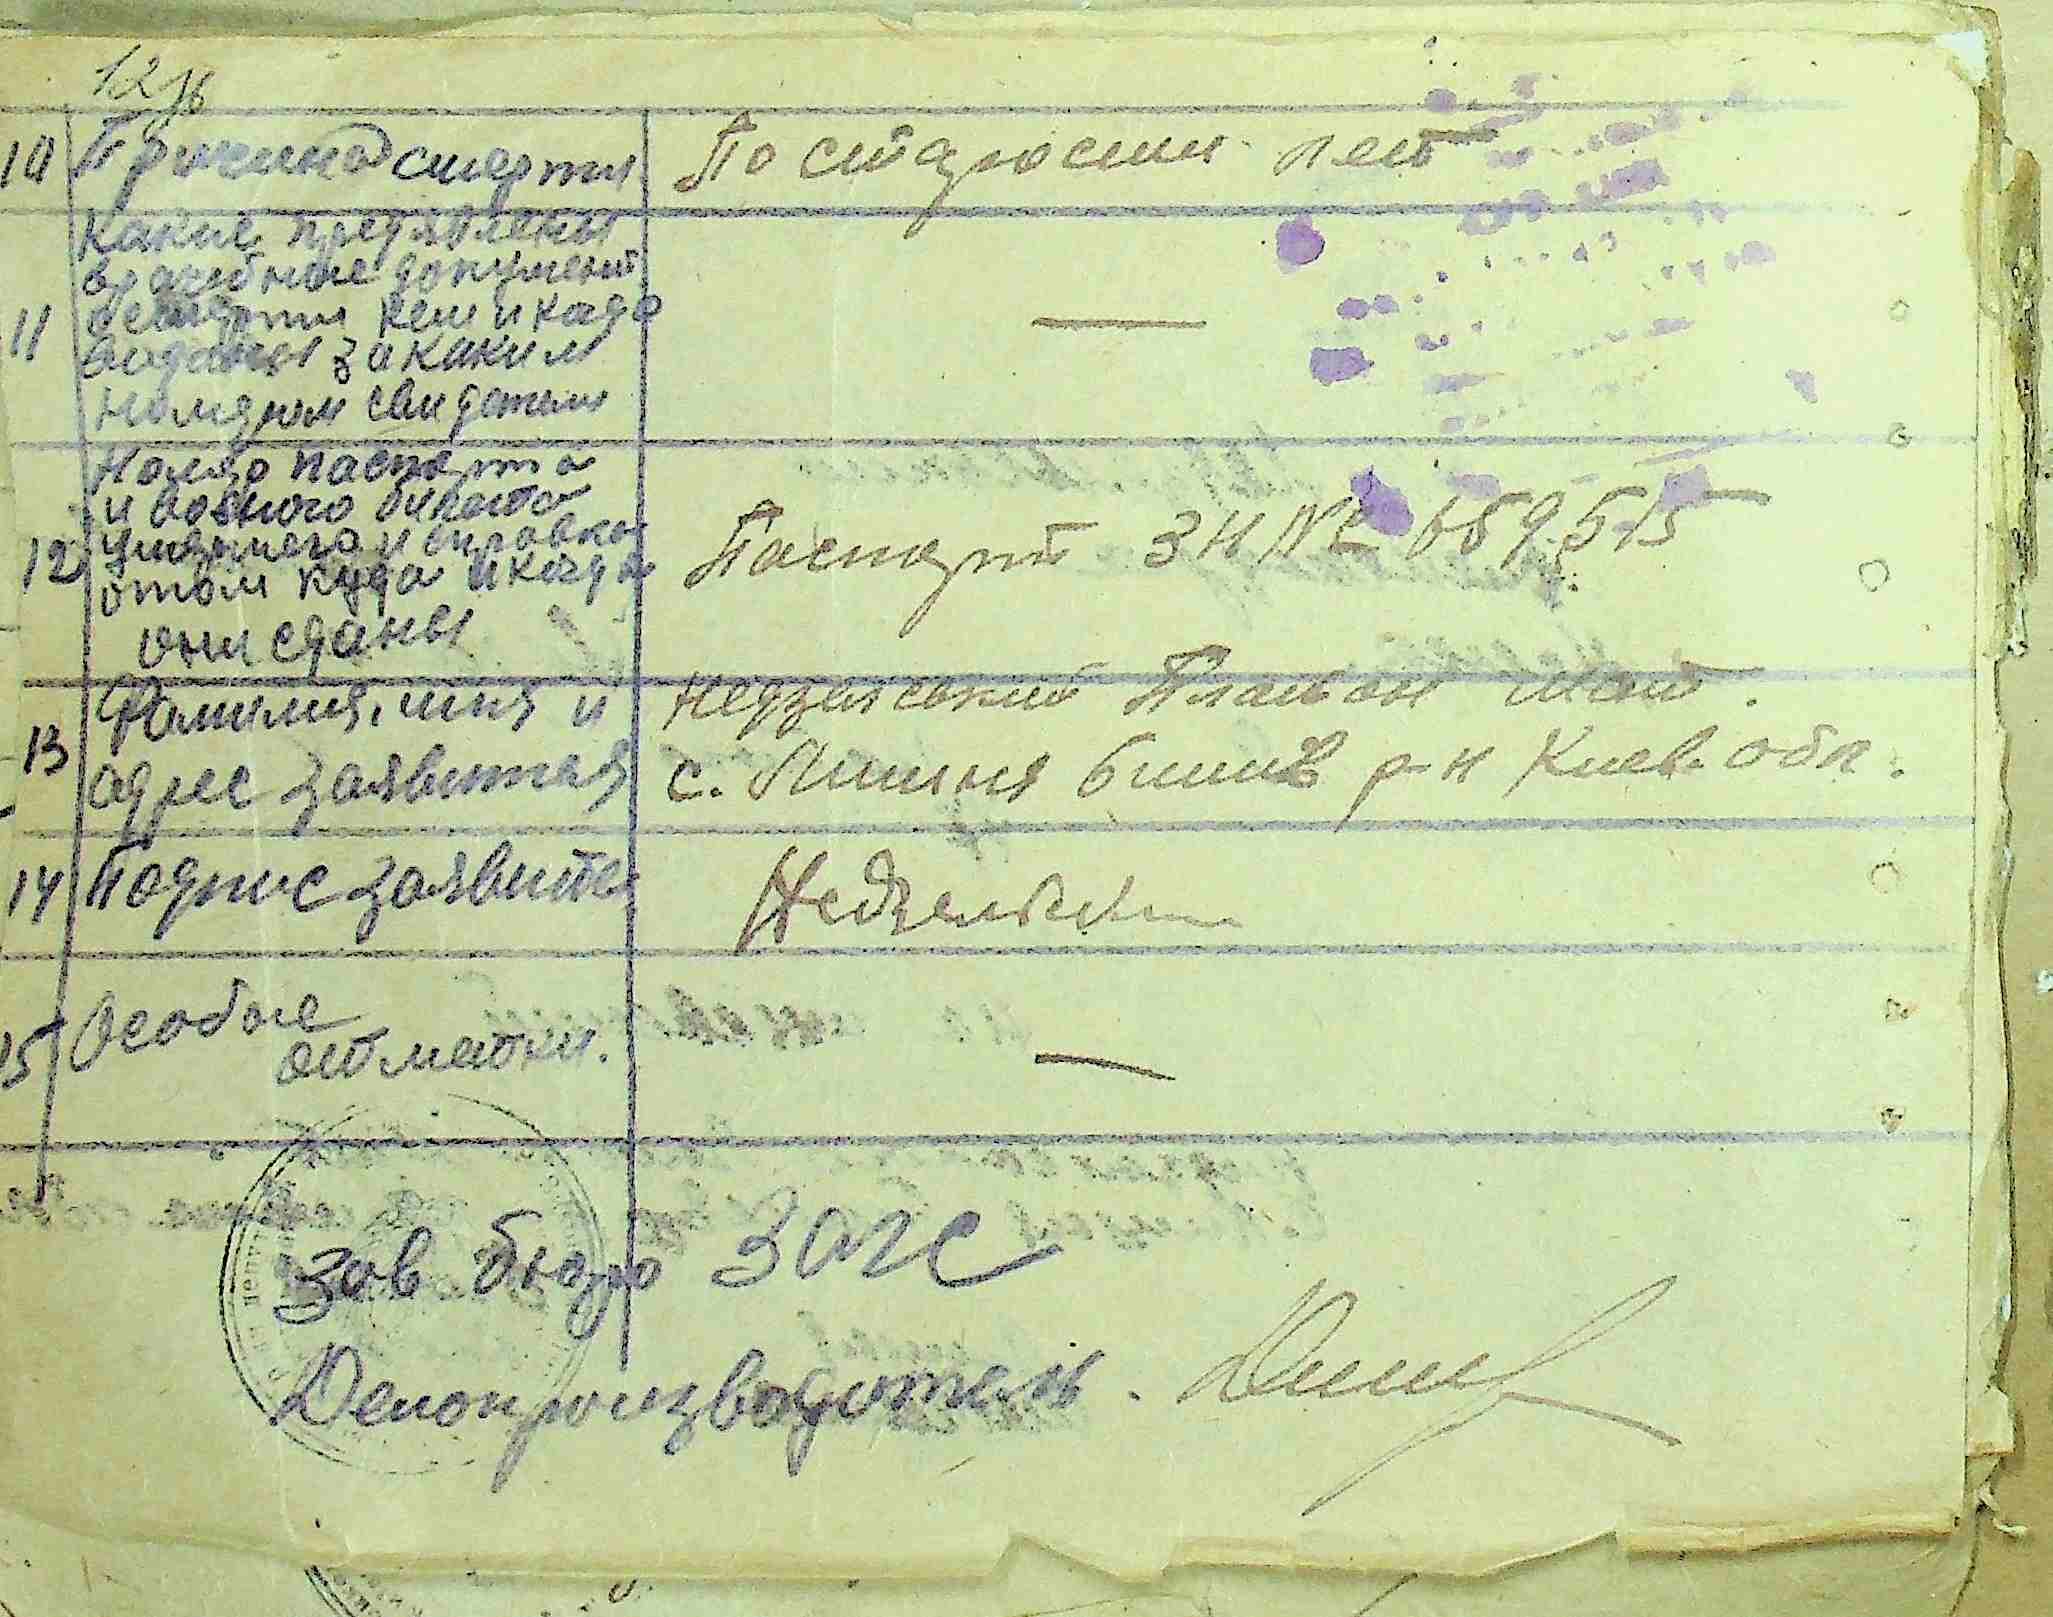 12зв
10 Причина смерти По старости лет
11 Какие предявлены
врачебные документ
о смерти кем и когда
выданы за каким
номером свидетели
—
12 Номер паспорта
и военого билета
умершего и справка
отом куда и когда
они сданы
Паспорт ЗН № 659515
13 Фамилия, имя и
адрес заявителя
Недзельский Платон Мат.
с. Лишня Бишів р-н Киев. обл.
14 Подпис заявител Недзельски
15 Особые
отметки.
—
Зав бюро ЗАГС
Делопроизводитель.